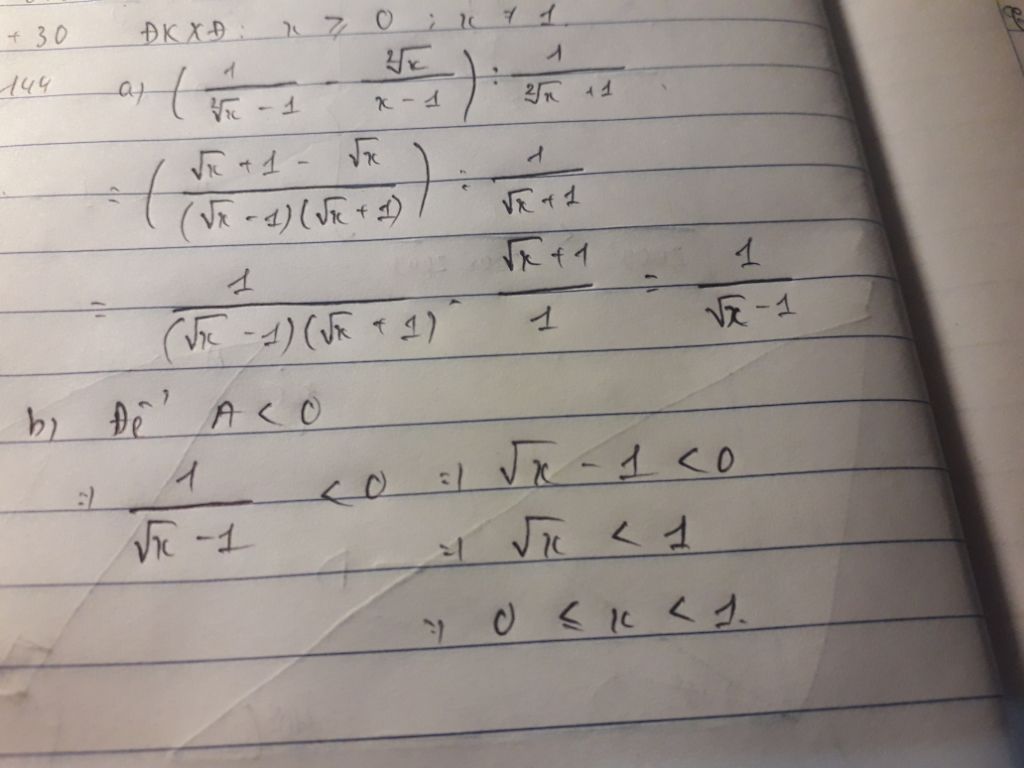 + 30 ĐKXĐ: x ≥ 0 ; x ≠ 1.
144 a) ( 1/(²√x - 1) - ²√x/(x - 1) ) : 1/(²√x + 1)
= ( (√x + 1 - √x)/((√x - 1)(√x + 1)) ) : 1/(√x + 1)
= 1/((√x - 1)(√x + 1)) · (√x + 1)/1 = 1/(√x - 1)
b) Để A < 0
=) 1/(√x - 1) < 0 =) √x - 1 < 0
=) √x < 1
=) 0 ≤ x < 1.